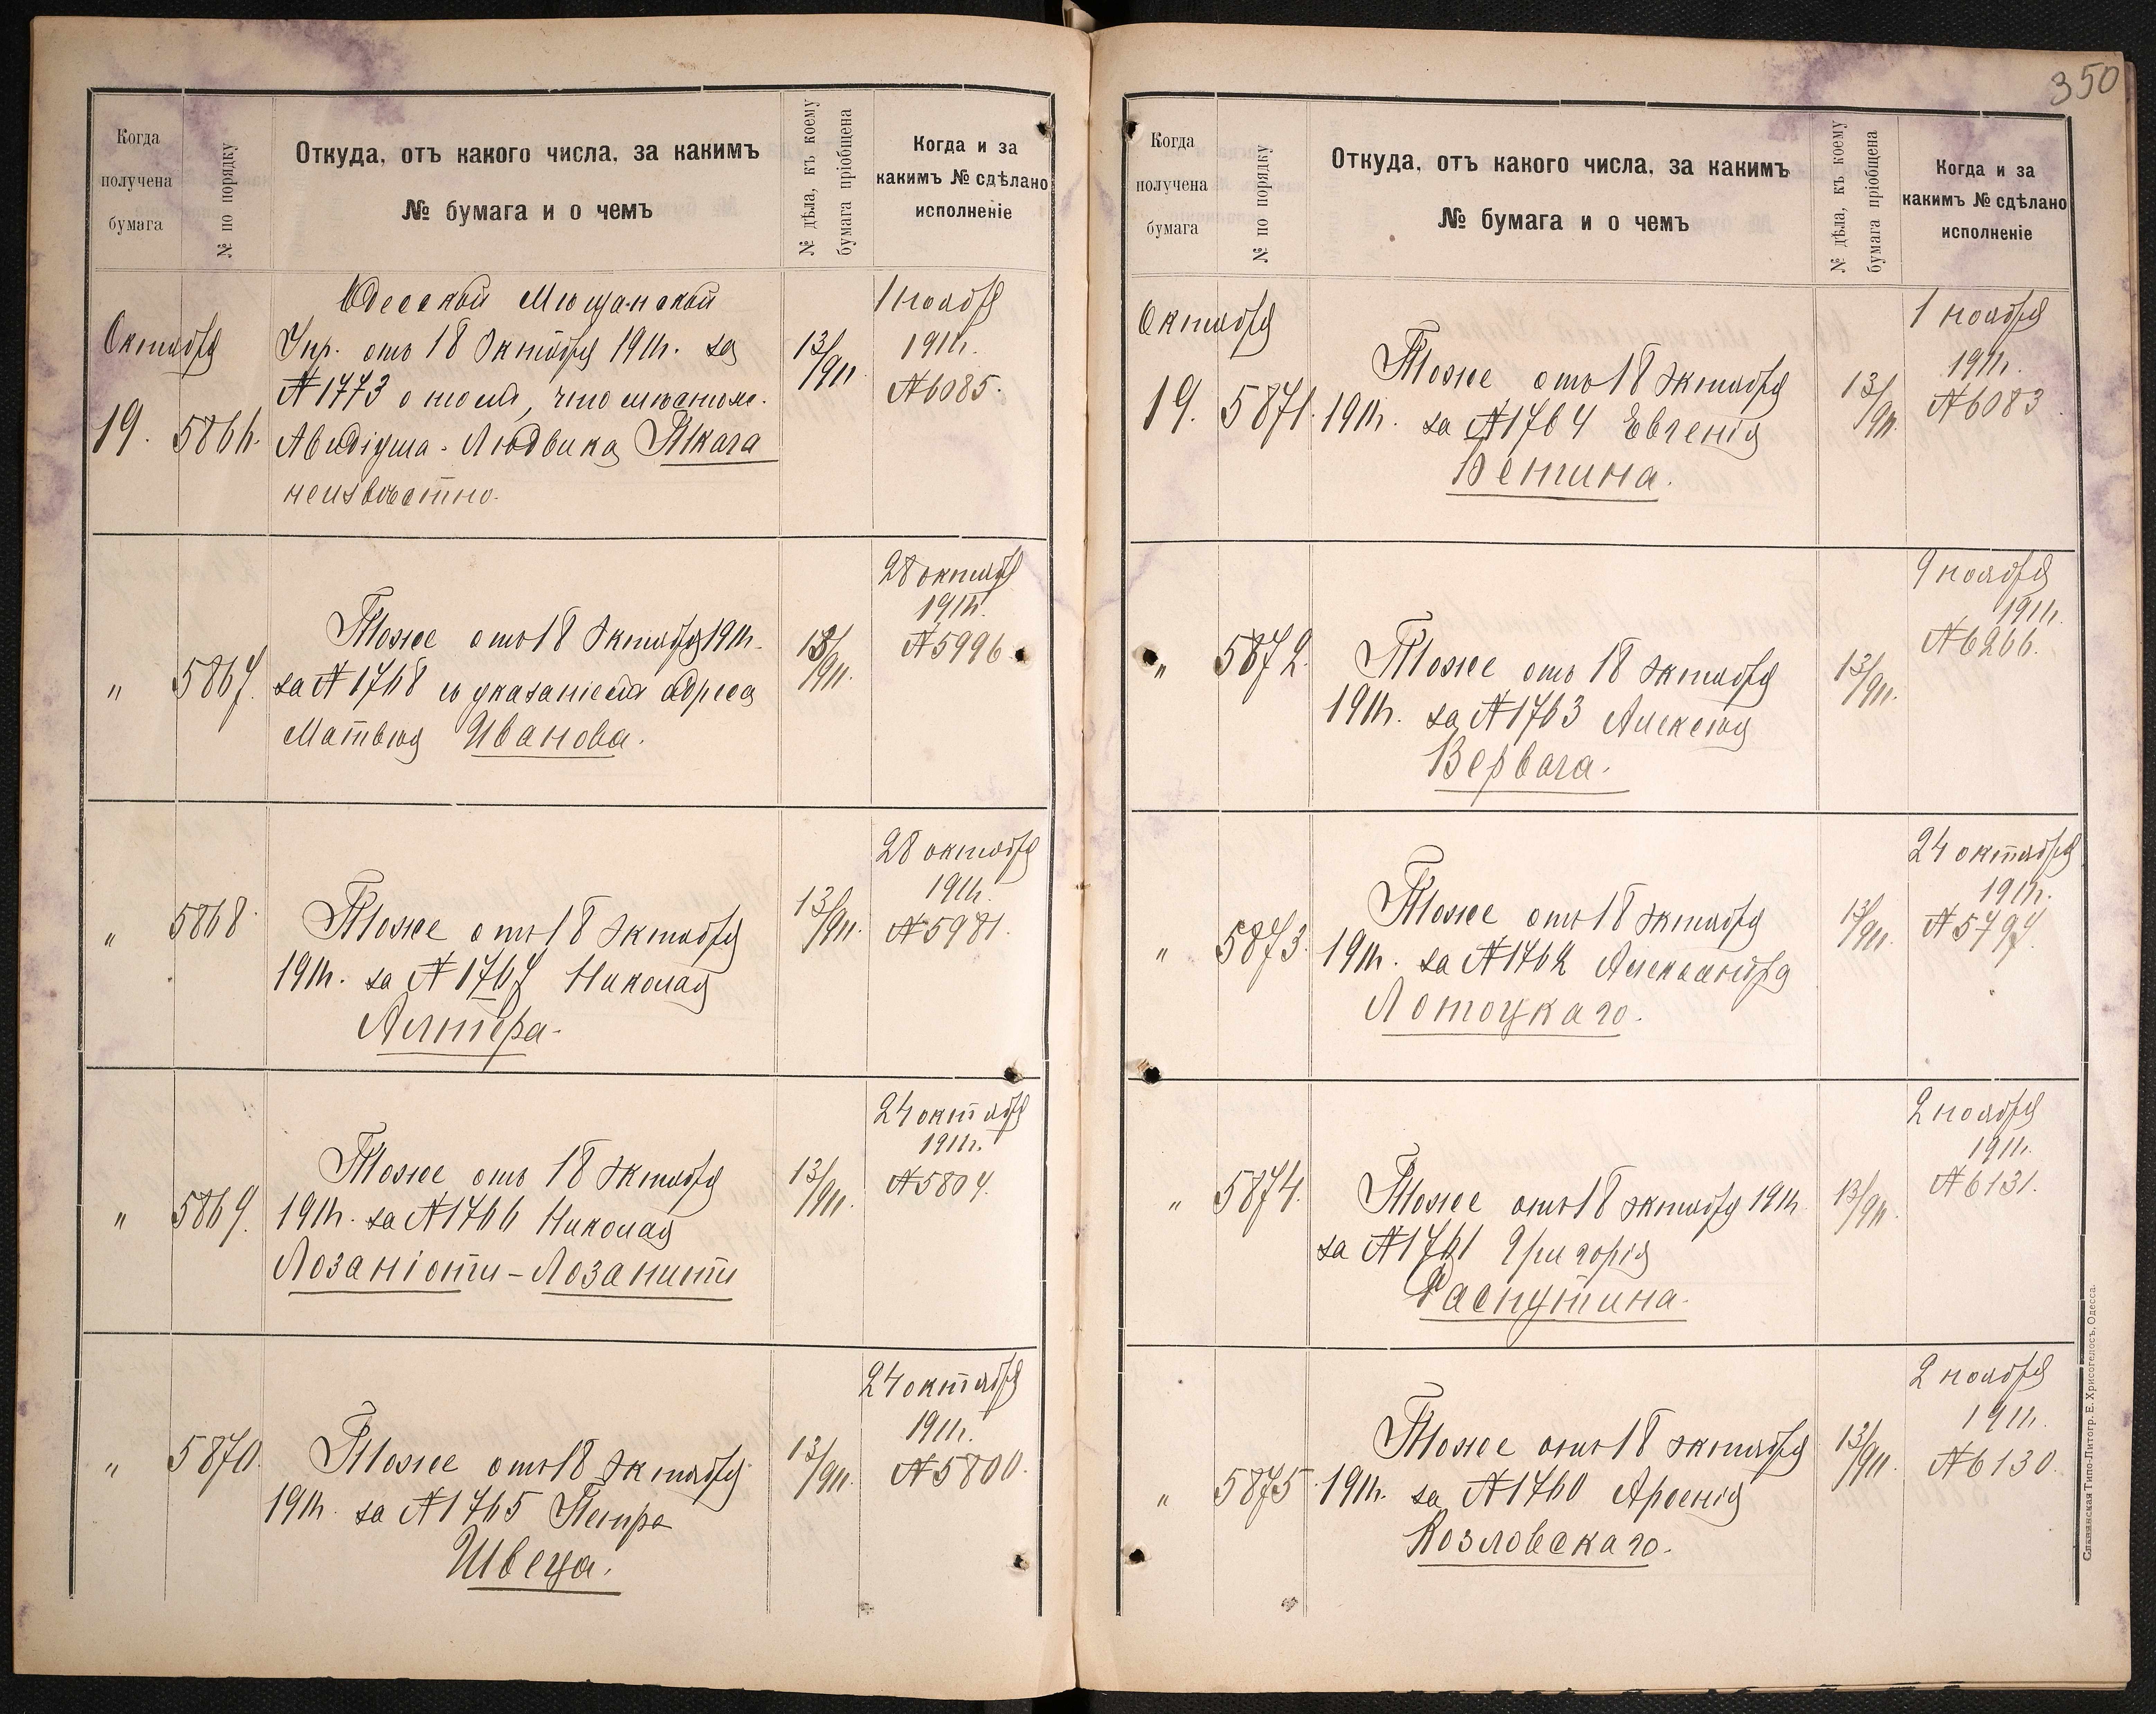 350
Когда получена бумага
№ по порядку
Откуда, отъ какого числа, за какимъ
№ бумага и о чемъ
№ дѣла, къ коему бумага пріобщена
Когда и за
какимъ № сдѣлано
исполненіе
Октября
19. 5866.
Одесской Мѣщанской
Упр. отъ 18 Октября 1911г. за
№ 1773 о томъ, что мѣстож.
Людвика Ткача
неизвѣстно.
13/911
1 ноября
1911г.
№ 6085.
" 5867.
Тоже отъ 18 Октября 1911г.
за № 1768 съ указаніемъ адреса
Матвѣя Иванова.
13/911.
28 октября
1911г.
№ 5996.
" 5868.
Тоже отъ 18 Октября
1911г. за № 1767 Николая
Алтера.
13/911.
28 октября
1911г.
№ 5981.
" 5869.
Тоже отъ 18 Октября
1911г. за № 1766 Николая
Лозаніоти-Лозанити
13/911.
24 октября
1911г.
№ 5804.
" 5870.
Тоже отъ 18 Октября
1911г. за № 1765 Петра
Швеца.
13/911.
24 октября
1911г.
№ 5800.
Когда получена бумага
№ по порядку
Откуда, отъ какого числа, за какимъ
№ бумага и о чемъ
№ дѣла, къ коему бумага пріобщена
Когда и за
какимъ № сдѣлано
исполненіе
Октября
19. 5871.
Тоже отъ 18 Октября
1911г. за № 1764 Евгенія
13/911.
1 ноября
1911г.
№ 6083
" 5872.
Тоже отъ 18 Октября
1911г. за № 1763 Алексѣя
Вервача.
13/911.
9 ноября
1911г.
№ 6266.
" 5873.
Тоже отъ 18 Октября
1911г. за № 1762 Александра
Лотоцкаго.
13/911.
24 октября
1911г.
№ 5797.
" 5874.
Тоже отъ 18 Октября 1911г.
за № 1761 Григорія
Распутина.
13/911.
2 ноября
1911г.
№ 6131.
" 5875.
Тоже отъ 18 Октября
1911г. за № 1760 Арсенія
Козловскаго.
13/911.
2 ноября
1911г.
№ 6130.
Славянская Типо-Литогр. Е. Хрисогелосъ, Одесса.